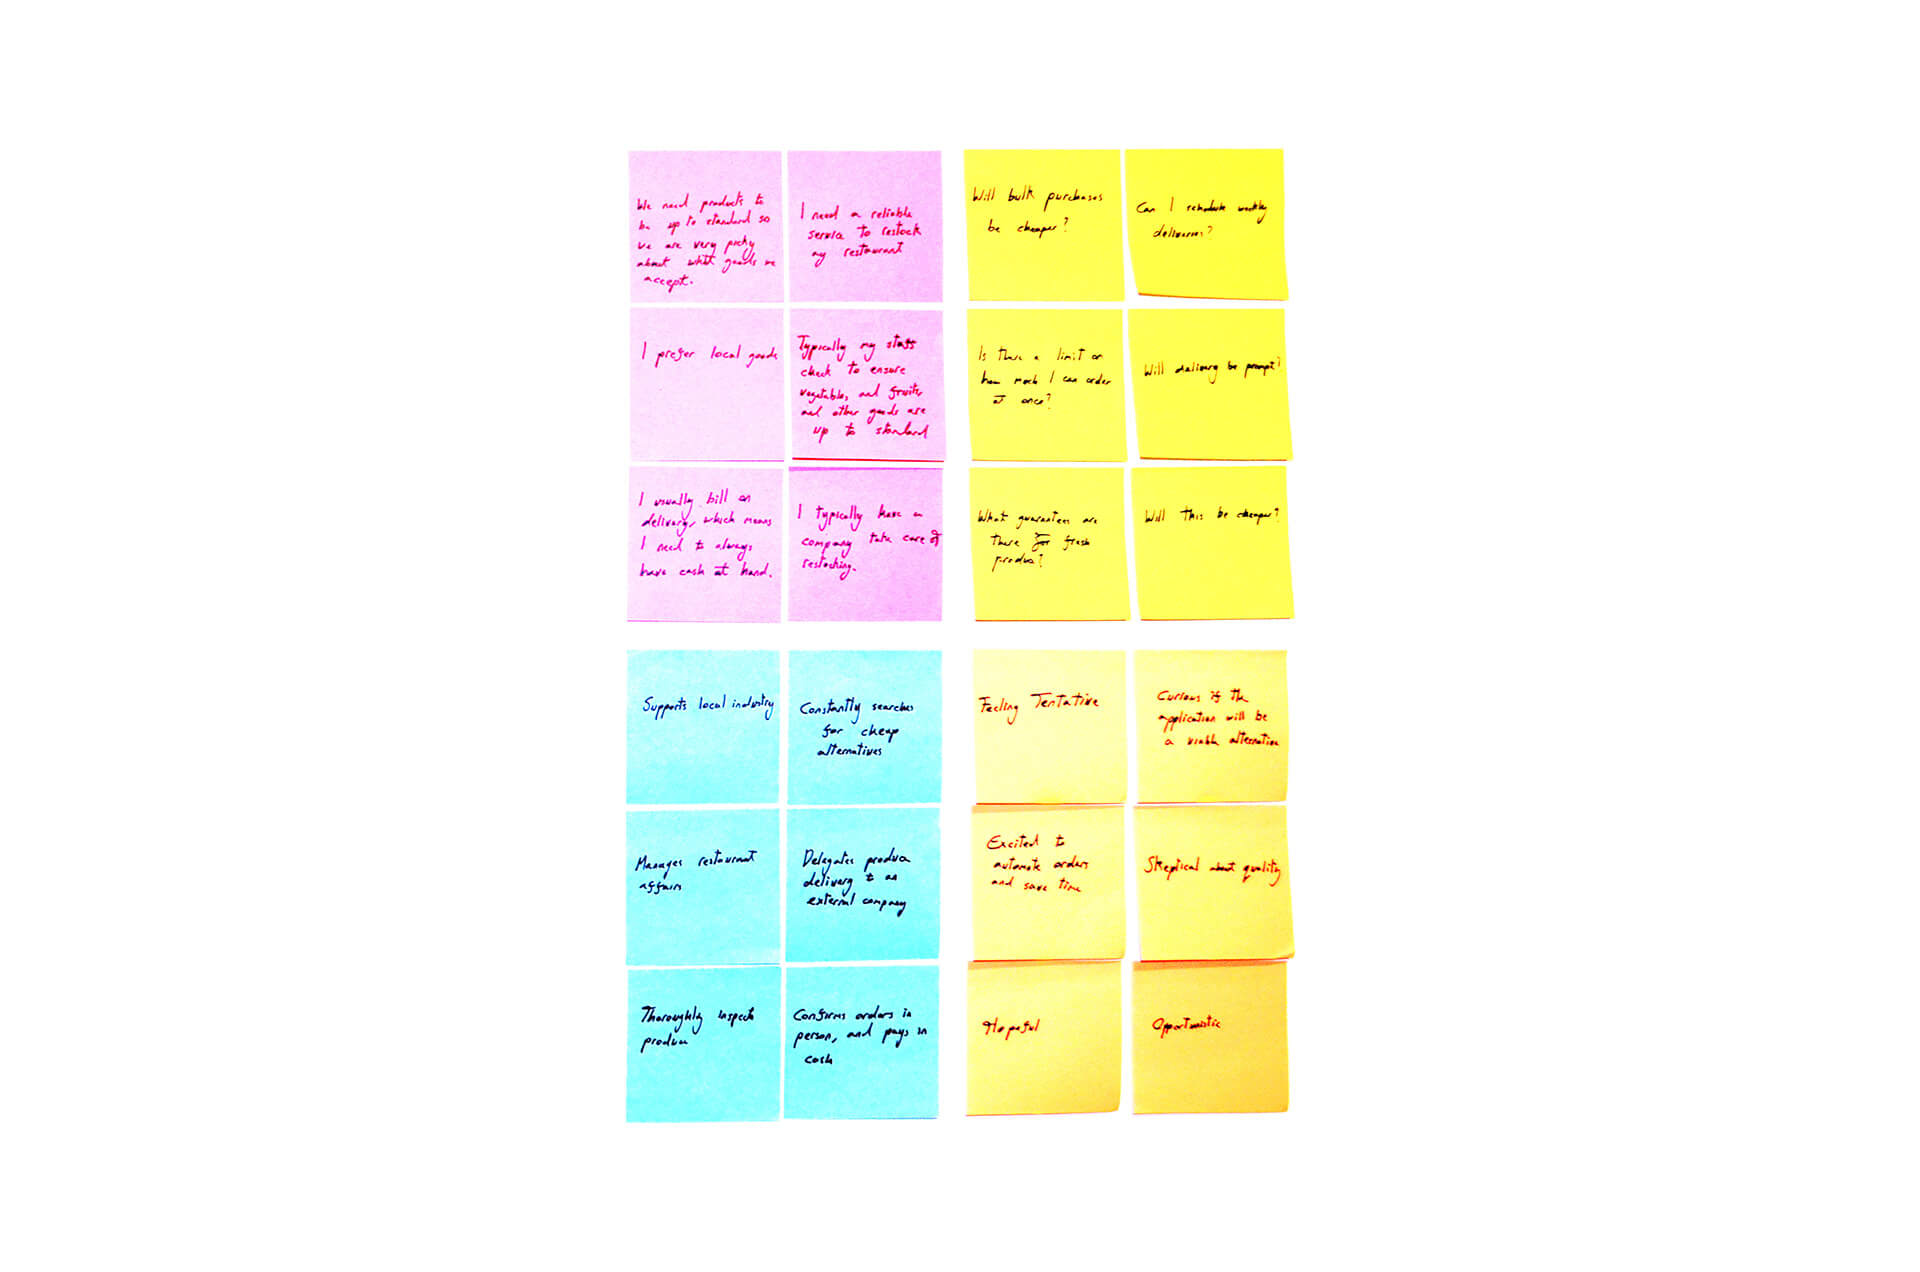 We need products to
be up to standard so
we are very picky
about what goods we
accept.
I need a reliable
service to restock
my restaurant
I prefer local goods
Typically my staff
check to ensure
vegetables, and fruits,
and other goods are
up to standard
I usually bill on
delivery, which means
I need to always
have cash at hand.
I typically have a
company take care of
restocking.
Will bulk purchases
be cheaper?
Can I schedule weekly
deliveries?
Is there a limit on
how much I can order
at once?
Will delivery be prompt?
What guarantees are
there for fresh
produce?
Will this be cheaper?
Supports local industry
Constantly searches
for cheap
alternatives
Manages restaurant
affairs
Delegates produce
delivery to an
external company
Thoroughly inspects
produce
Confirms orders in
person, and pays in
cash
Feeling Tentative
Curious if the
application will be
a viable alternative
Excited to
automate orders
and save time
Skeptical about quality
Hopeful
Opportunistic